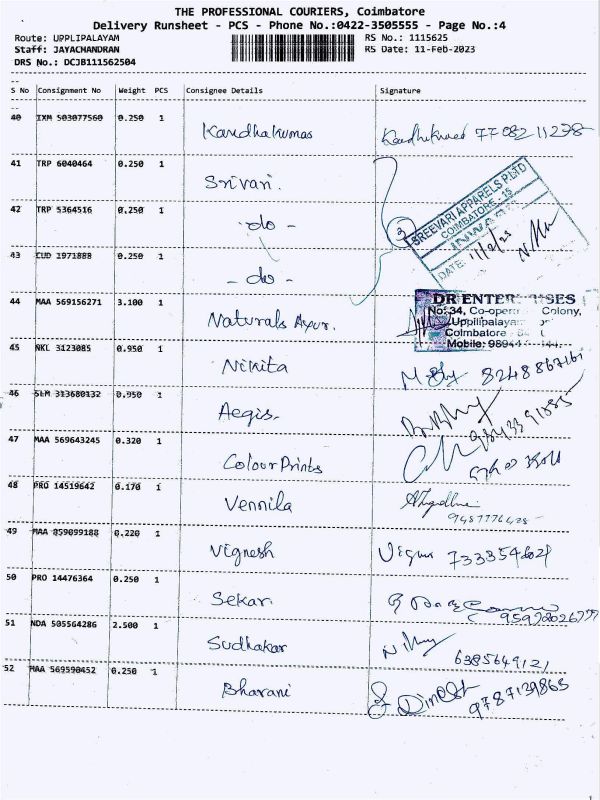 THE PROFESSIONAL COURIERS, Coimbatore
Delivery Runsheet - PCS - Phone No.:0422-3505555 - Page No.:4
Route: UPPLIPALAYAM
Staff: JAYACHANDRAN
DRS No.: DCJB111562504
RS No.: 1115625
RS Date: 11-Feb-2023
S No Consignment No Weight PCS Consignee Details Signature
40 IXM 503077560 0.250 1 Kandhakumar 7708211238
41 TRP 6040464 0.250 1 Srivari.
42 TRP 5364516 0.250 1 - do -
43 CUD 1971888 0.250 1 - do -
3
SREEVARI APPARELS P LTD
COIMBATORE - 15
INWARD
DATE: 11/2/23
44 MAA 569156271 3.100 1 Naturals Ayur.
DR ENTER SES
No: 34, Co-oper Colony,
Uppilipalayam
Coimbatore
Mobile: 98944
45 NKL 3123085 0.950 1 Nikita 8248867161
46 SLM 313680132 0.950 1 Aegis.
47 MAA 569643245 0.320 1 Colour Prints
48 PRO 14519642 0.170 1 Vennila
49 MAA 859099188 0.220 1 Vignesh
50 PRO 14476364 0.250 1 Sekar.
51 NDA 505564286 2.500 1 Sudhakar 6385649121
52 MAA 569590452 0.250 1 Bharani Dinesh 9787139865